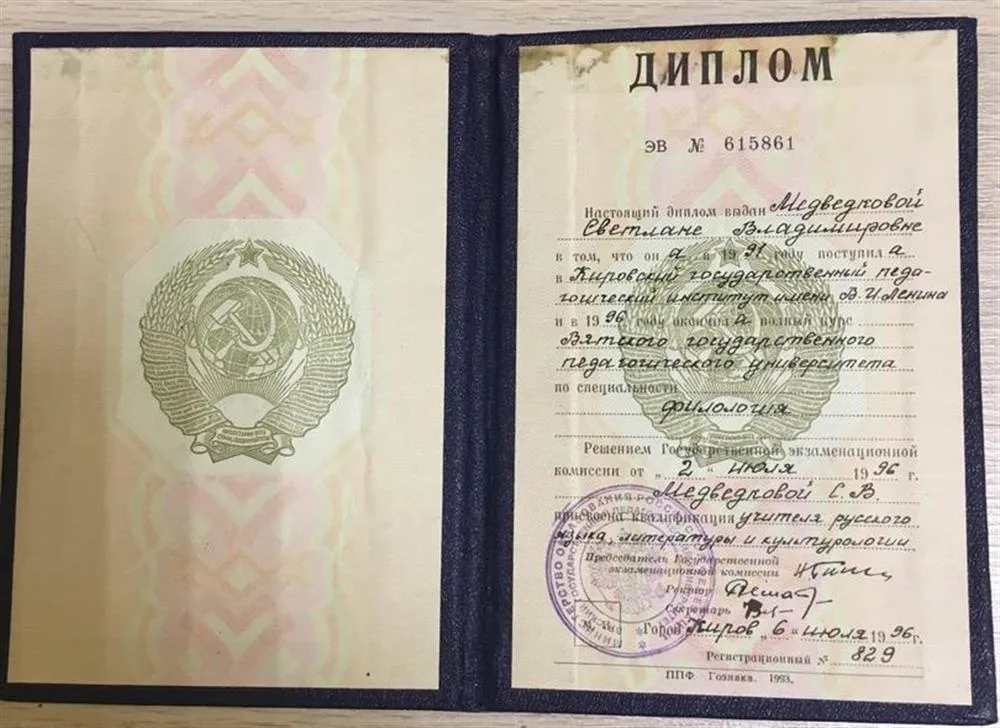 ДИПЛОМ
ЭВ № 615861
Настоящий диплом выдан Медведковой
Светлане Владимировне
в том, что он а в 1991 году поступил а
в Кировский государственный педа-
гогический институт имени В.И.Ленина
и в 1996 году окончил а полный курс
Вятского государственного
педагогического университета
по специальности
филология
Решением Государственной экзаменационной
комиссии от „2“ июля 1996 г.
Медведковой С.В
присвоена квалификация учителя русского
языка, литературы и культурологии
Председатель Государственной
экзаменационной комиссии
Ректор
Секретарь
Город Киров „6“ июля 1996г.
Регистрационный № 829
ППФ Гознака. 1993.